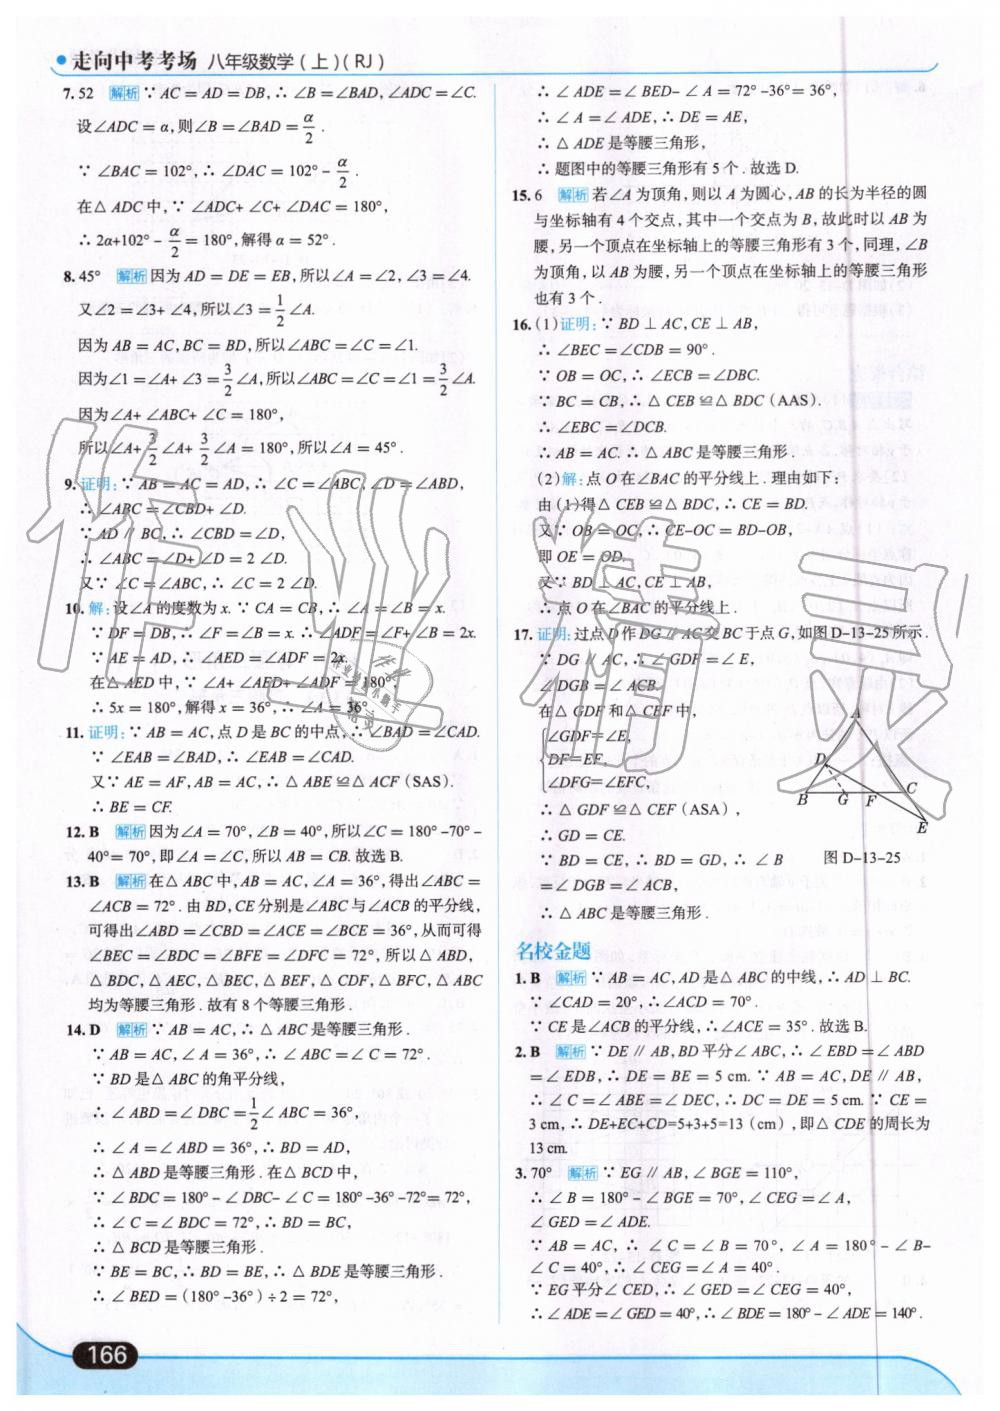 走向中考考场 八年级数学(上)(RJ)
7. 52 解析 ∵ AC = AD = DB,∴ ∠B = ∠BAD,∠ADC = ∠C.
设∠ADC = α,则∠B = ∠BAD = α/2.
∵ ∠BAC = 102°,∴ ∠DAC = 102° - α/2.
在△ ADC 中,∵ ∠ADC+ ∠C+ ∠DAC = 180°,
∴ 2α+102° - α/2 = 180°,解得 α = 52°.
8. 45° 解析 因为 AD = DE = EB,所以∠A = ∠2,∠3 = ∠4.
又∠2 = ∠3+ ∠4,所以∠3 = 1/2 ∠A.
因为 AB = AC,BC = BD,所以∠ABC = ∠C = ∠1.
因为∠1 = ∠A+ ∠3 = 3/2 ∠A,所以∠ABC = ∠C = ∠1 = 3/2 ∠A.
因为∠A+ ∠ABC+ ∠C = 180°,
所以∠A+ 3/2 ∠A+ 3/2 ∠A = 180°,所以∠A = 45°.
9. 证明:∵ AB = AC = AD,∴ ∠C = ∠ABC,∠D = ∠ABD,
∴ ∠ABC = ∠CBD+ ∠D.
∵ AD ∥ BC,∴ ∠CBD = ∠D,
∴ ∠ABC = ∠D+ ∠D = 2 ∠D.
又∵ ∠C = ∠ABC,∴ ∠C = 2 ∠D.
10. 解:设∠A 的度数为 x. ∵ CA = CB,∴ ∠A = ∠B = x.
∵ DF = DB,∴ ∠F = ∠B = x. ∴ ∠ADF = ∠F+ ∠B = 2x.
∵ AE = AD,∴ ∠AED = ∠ADF = 2x.
在△ AED 中,∵ ∠A+ ∠AED+ ∠ADF = 180°,
∴ 5x = 180°,解得 x = 36°,∴ ∠A = 36°.
11. 证明:∵ AB = AC,点 D 是 BC 的中点,∴ ∠BAD = ∠CAD.
∵ ∠EAB = ∠BAD,∴ ∠EAB = ∠CAD.
又∵ AE = AF,AB = AC,∴ △ ABE ≌△ ACF (SAS).
∴ BE = CF.
12. B 解析 因为∠A = 70°,∠B = 40°,所以∠C = 180° -70° -
40°= 70°,即∠A = ∠C,所以 AB = CB. 故选 B.
13. B 解析 在△ ABC 中,AB = AC,∠A = 36°,得出∠ABC =
∠ACB = 72°. 由 BD,CE 分别是∠ABC 与∠ACB 的平分线,
可得出∠ABD = ∠CBD = ∠ACE = ∠BCE = 36°,从而可得
∠BEC = ∠BDC = ∠BFE = ∠DFC = 72°,所以△ ABD,
△ BDC,△ AEC,△ BEC,△ BEF,△ CDF,△ BFC,△ ABC
均为等腰三角形. 故有 8 个等腰三角形.
14. D 解析 ∵ AB = AC,∴ △ ABC 是等腰三角形.
∵ AB = AC,∠ A = 36°,∴ ∠ ABC = ∠ C = 72°.
∵ BD 是△ ABC 的角平分线,
∴ ∠ ABD = ∠ DBC = 1/2 ∠ ABC = 36°,
∴ ∠ A = ∠ ABD = 36°,∴ BD = AD,
∴ △ ABD 是等腰三角形. 在△ BCD 中,
∵ ∠ BDC = 180° - ∠ DBC- ∠ C = 180° -36° -72°= 72°,
∴ ∠ C = ∠ BDC = 72°,∴ BD = BC,
∴ △ BCD 是等腰三角形.
∵ BE = BC,∴ BD = BE,∴ △ BDE 是等腰三角形.
∴ ∠ BED = (180° -36°) ÷ 2 = 72°,
∴ ∠ ADE =∠ BED- ∠ A = 72° -36°= 36°,
∴ ∠ A =∠ ADE,∴ DE = AE,
∴ △ ADE 是等腰三角形,
∴ 题图中的等腰三角形有 5 个. 故选 D.
15. 6 解析 若∠A 为顶角,则以 A 为圆心,AB 的长为半径的圆
与坐标轴有 4 个交点,其中一个交点为 B,故此时以 AB 为
腰,另一个顶点在坐标轴上的等腰三角形有 3 个,同理,∠B
为顶角,以 AB 为腰,另一个顶点在坐标轴上的等腰三角形
也有 3 个.
16. (1)证明:∵ BD ⊥ AC,CE ⊥ AB,
∴ ∠BEC = ∠CDB = 90°.
∵ OB = OC,∴ ∠ECB = ∠DBC.
∵ BC = CB,∴ △ CEB ≌△ BDC (AAS).
∴ ∠EBC = ∠DCB.
∴ AB = AC. ∴ △ ABC 是等腰三角形.
(2)解:点 O 在∠BAC 的平分线上. 理由如下:
由(1)得△ CEB ≌△ BDC,∴ CE = BD.
又∵ OB = OC,∴ CE-OC = BD-OB,
即 OE = OD.
又∵ BD ⊥ AC,CE ⊥ AB,
∴ 点 O 在∠BAC 的平分线上.
17. 证明:过点 D 作 DG ∥ AC 交 BC 于点 G,如图 D-13-25 所示.
∵ DG ∥ AC,∴ ∠ GDF =∠ E,
∠ DGB =∠ ACB.
在△ GDF 和△ CEF 中,
∠GDF=∠E,
DF=EF,
∠DFG=∠EFC,
∴ △ GDF ≌△ CEF (ASA),
∴ GD = CE.
∵ BD = CE,∴ BD = GD,∴ ∠ B
=∠ DGB =∠ ACB,
∴ △ ABC 是等腰三角形.
A
D
B G F C
E
图 D-13-25
名校金题
1. B 解析 ∵ AB = AC,AD 是△ ABC 的中线,∴ AD ⊥ BC.
∵ ∠CAD = 20°,∴ ∠ACD = 70°.
∵ CE 是∠ACB 的平分线,∴ ∠ACE = 35°. 故选 B.
2. B 解析 ∵ DE ∥ AB,BD 平分∠ ABC,∴ ∠ EBD =∠ ABD
=∠ EDB,∴ DE = BE = 5 cm. ∵ AB = AC,DE ∥ AB,
∴ ∠ C =∠ ABE =∠ DEC,∴ DC = DE = 5 cm. ∵ CE =
3 cm,∴ DE+EC+CD=5+3+5=13 (cm),即△ CDE 的周长为
13 cm.
3. 70° 解析 ∵ EG ∥ AB,∠ BGE = 110°,
∴ ∠ B = 180° - ∠ BGE = 70°,∠ CEG =∠ A,
∠ GED =∠ ADE.
∵ AB = AC,∴ ∠ C = ∠ B = 70°,∠ A = 180° - ∠ B-
∠ C = 40°,∴ ∠ CEG =∠ A = 40°.
∵ EG 平分∠ CED,∴ ∠ GED =∠ CEG = 40°,
∴ ∠ ADE =∠ GED = 40°,∴ ∠ BDE = 180° - ∠ ADE = 140°.
166
作业精灵